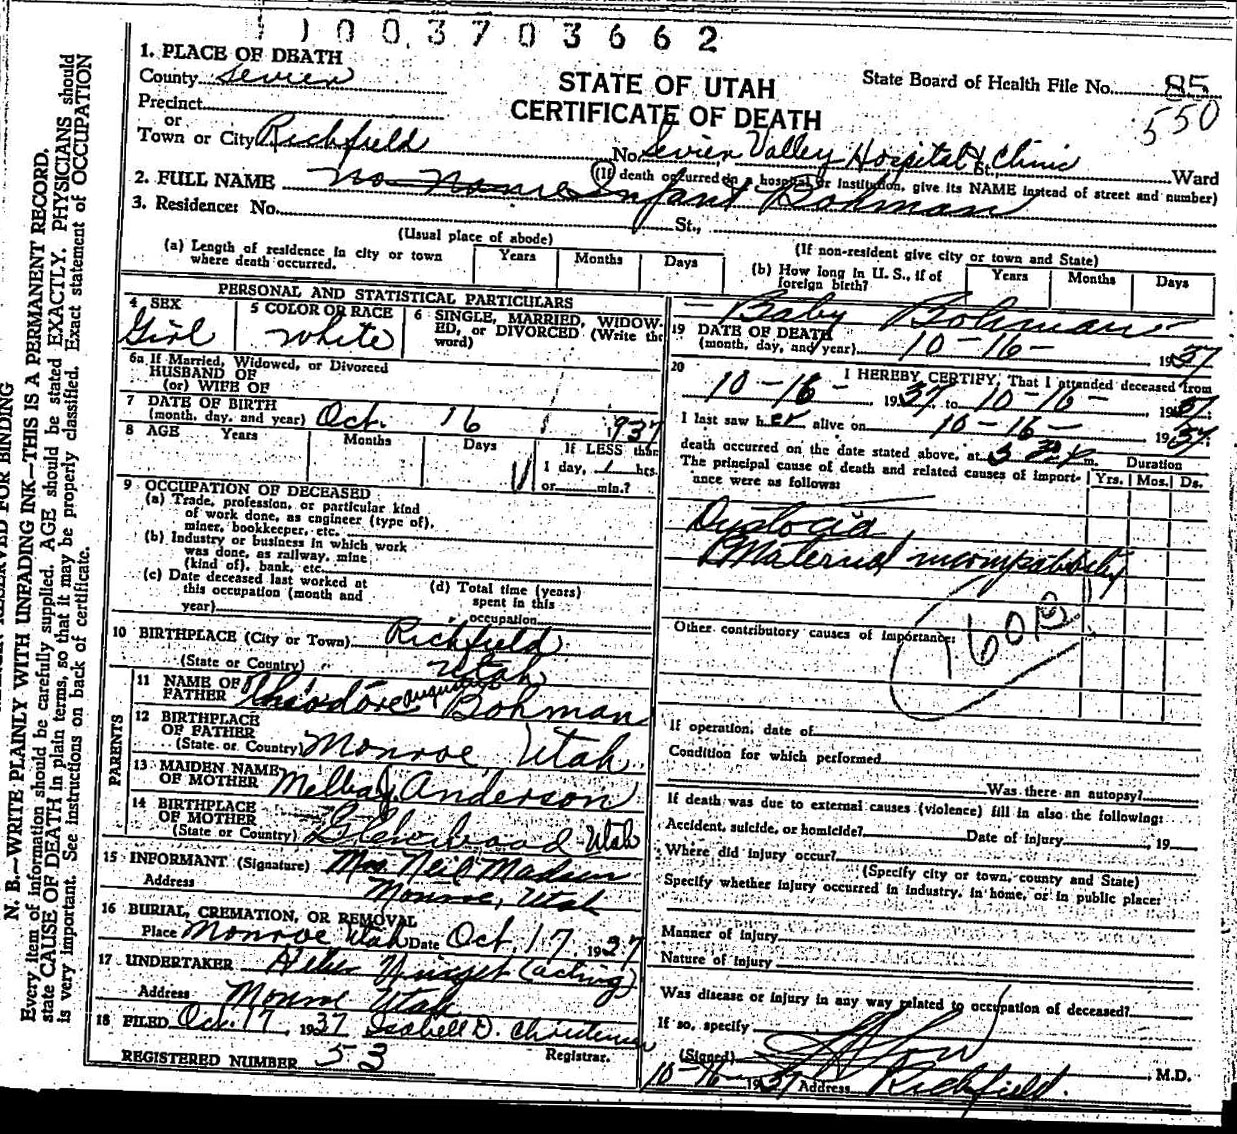 1 1 0 0 3 7 0 3 6 6 2
1. PLACE OF DEATH
County Sevier
Precinct
or
Town or City Richfield
STATE OF UTAH
CERTIFICATE OF DEATH
State Board of Health File No. 85
550
No. Sevier Valley Hospital & Clinic St., Ward
(If death occurred in a hospital or institution, give its NAME instead of street and number)
2. FULL NAME No Name Infant Bohman
3. Residence: No. St.,
(Usual place of abode)
(If non-resident give city or town and State)
(a) Length of residence in city or town where death occurred. Years Months Days
(b) How long in U. S., if of foreign birth? Years Months Days
PERSONAL AND STATISTICAL PARTICULARS
4 SEX
Girl
5 COLOR OR RACE
White
6 SINGLE, MARRIED, WIDOWED, or DIVORCED (Write the word)
6a If Married, Widowed, or Divorced
HUSBAND OF
(or) WIFE OF
7 DATE OF BIRTH
(month, day, and year) Oct. 16 1937
8 AGE Years Months Days If LESS than
1 day, 1 hrs.
or min.?
9 OCCUPATION OF DECEASED
(a) Trade, profession, or particular kind
of work done, as engineer (type of),
miner, bookkeeper, etc.
(b) Industry or business in which work
was done, as railway, mine
(kind of), bank, etc.
(c) Date deceased last worked at
this occupation (month and
year)
(d) Total time (years)
spent in this
occupation
10 BIRTHPLACE (City or Town) Richfield
(State or Country) Utah
PARENTS
11 NAME OF FATHER Theodore Augustus Bohman
12 BIRTHPLACE OF FATHER
(State or Country) Monroe Utah
13 MAIDEN NAME OF MOTHER Melba J. Anderson
14 BIRTHPLACE OF MOTHER
(State or Country) Utah
15 INFORMANT (Signature) Mrs. Neil Madsen
Address Monroe, Utah
16 BURIAL, CREMATION, OR REMOVAL
Place Monroe Utah Date Oct. 17 1937
17 UNDERTAKER (acting)
Address Monroe Utah
18 FILED Oct. 17, 1937 Isabell D. Christensen
Registrar.
REGISTERED NUMBER 53
Baby Bohman
19 DATE OF DEATH
(month, day, and year) 10-16- 1937
20 I HEREBY CERTIFY, That I attended deceased from
10-16- 1937 to 10-16- 1937.
I last saw her alive on 10-16- 1937.
death occurred on the date stated above, at m.
The principal cause of death and related causes of importance were as follows:
Duration
Yrs. Mos. Ds.
Dystocia
Maternal incompatibility
Other contributory causes of importance:
160
If operation, date of
Condition for which performed
Was there an autopsy?
If death was due to external causes (violence) fill in also the following:
Accident, suicide, or homicide? Date of injury , 19
Where did injury occur?
(Specify city or town, county and State)
Specify whether injury occurred in industry, in home, or in public place:
Manner of injury
Nature of injury
Was disease or injury in any way related to occupation of deceased?
If so, specify
(Signed) , M.D.
10-16- 1937 Address Richfield.
RESERVED FOR BINDING
N. B.—WRITE PLAINLY WITH UNFADING INK—THIS IS A PERMANENT RECORD.
Every item of information should be carefully supplied. AGE should be stated EXACTLY. PHYSICIANS should
state CAUSE OF DEATH in plain terms, so that it may be properly classified. Exact statement of OCCUPATION
is very important. See instructions on back of certificate.